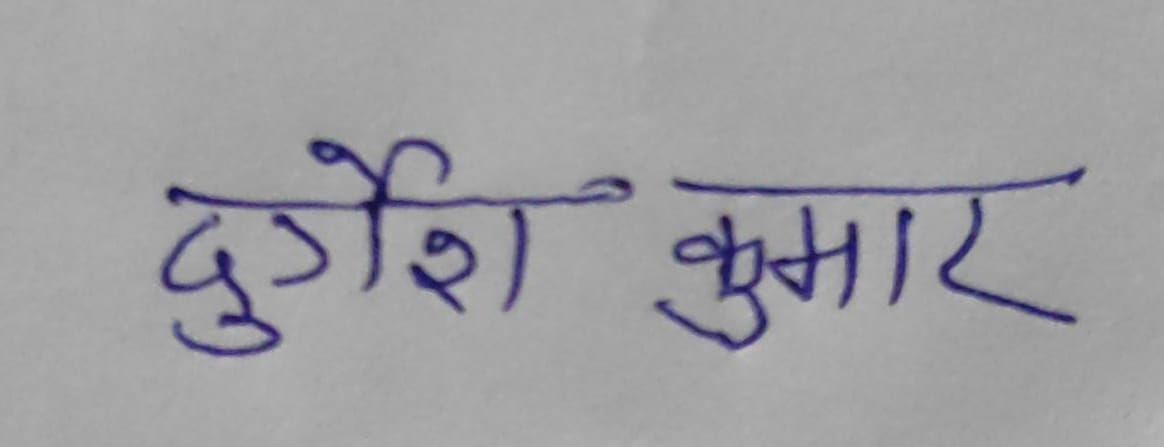 दुर्गेश कुमार